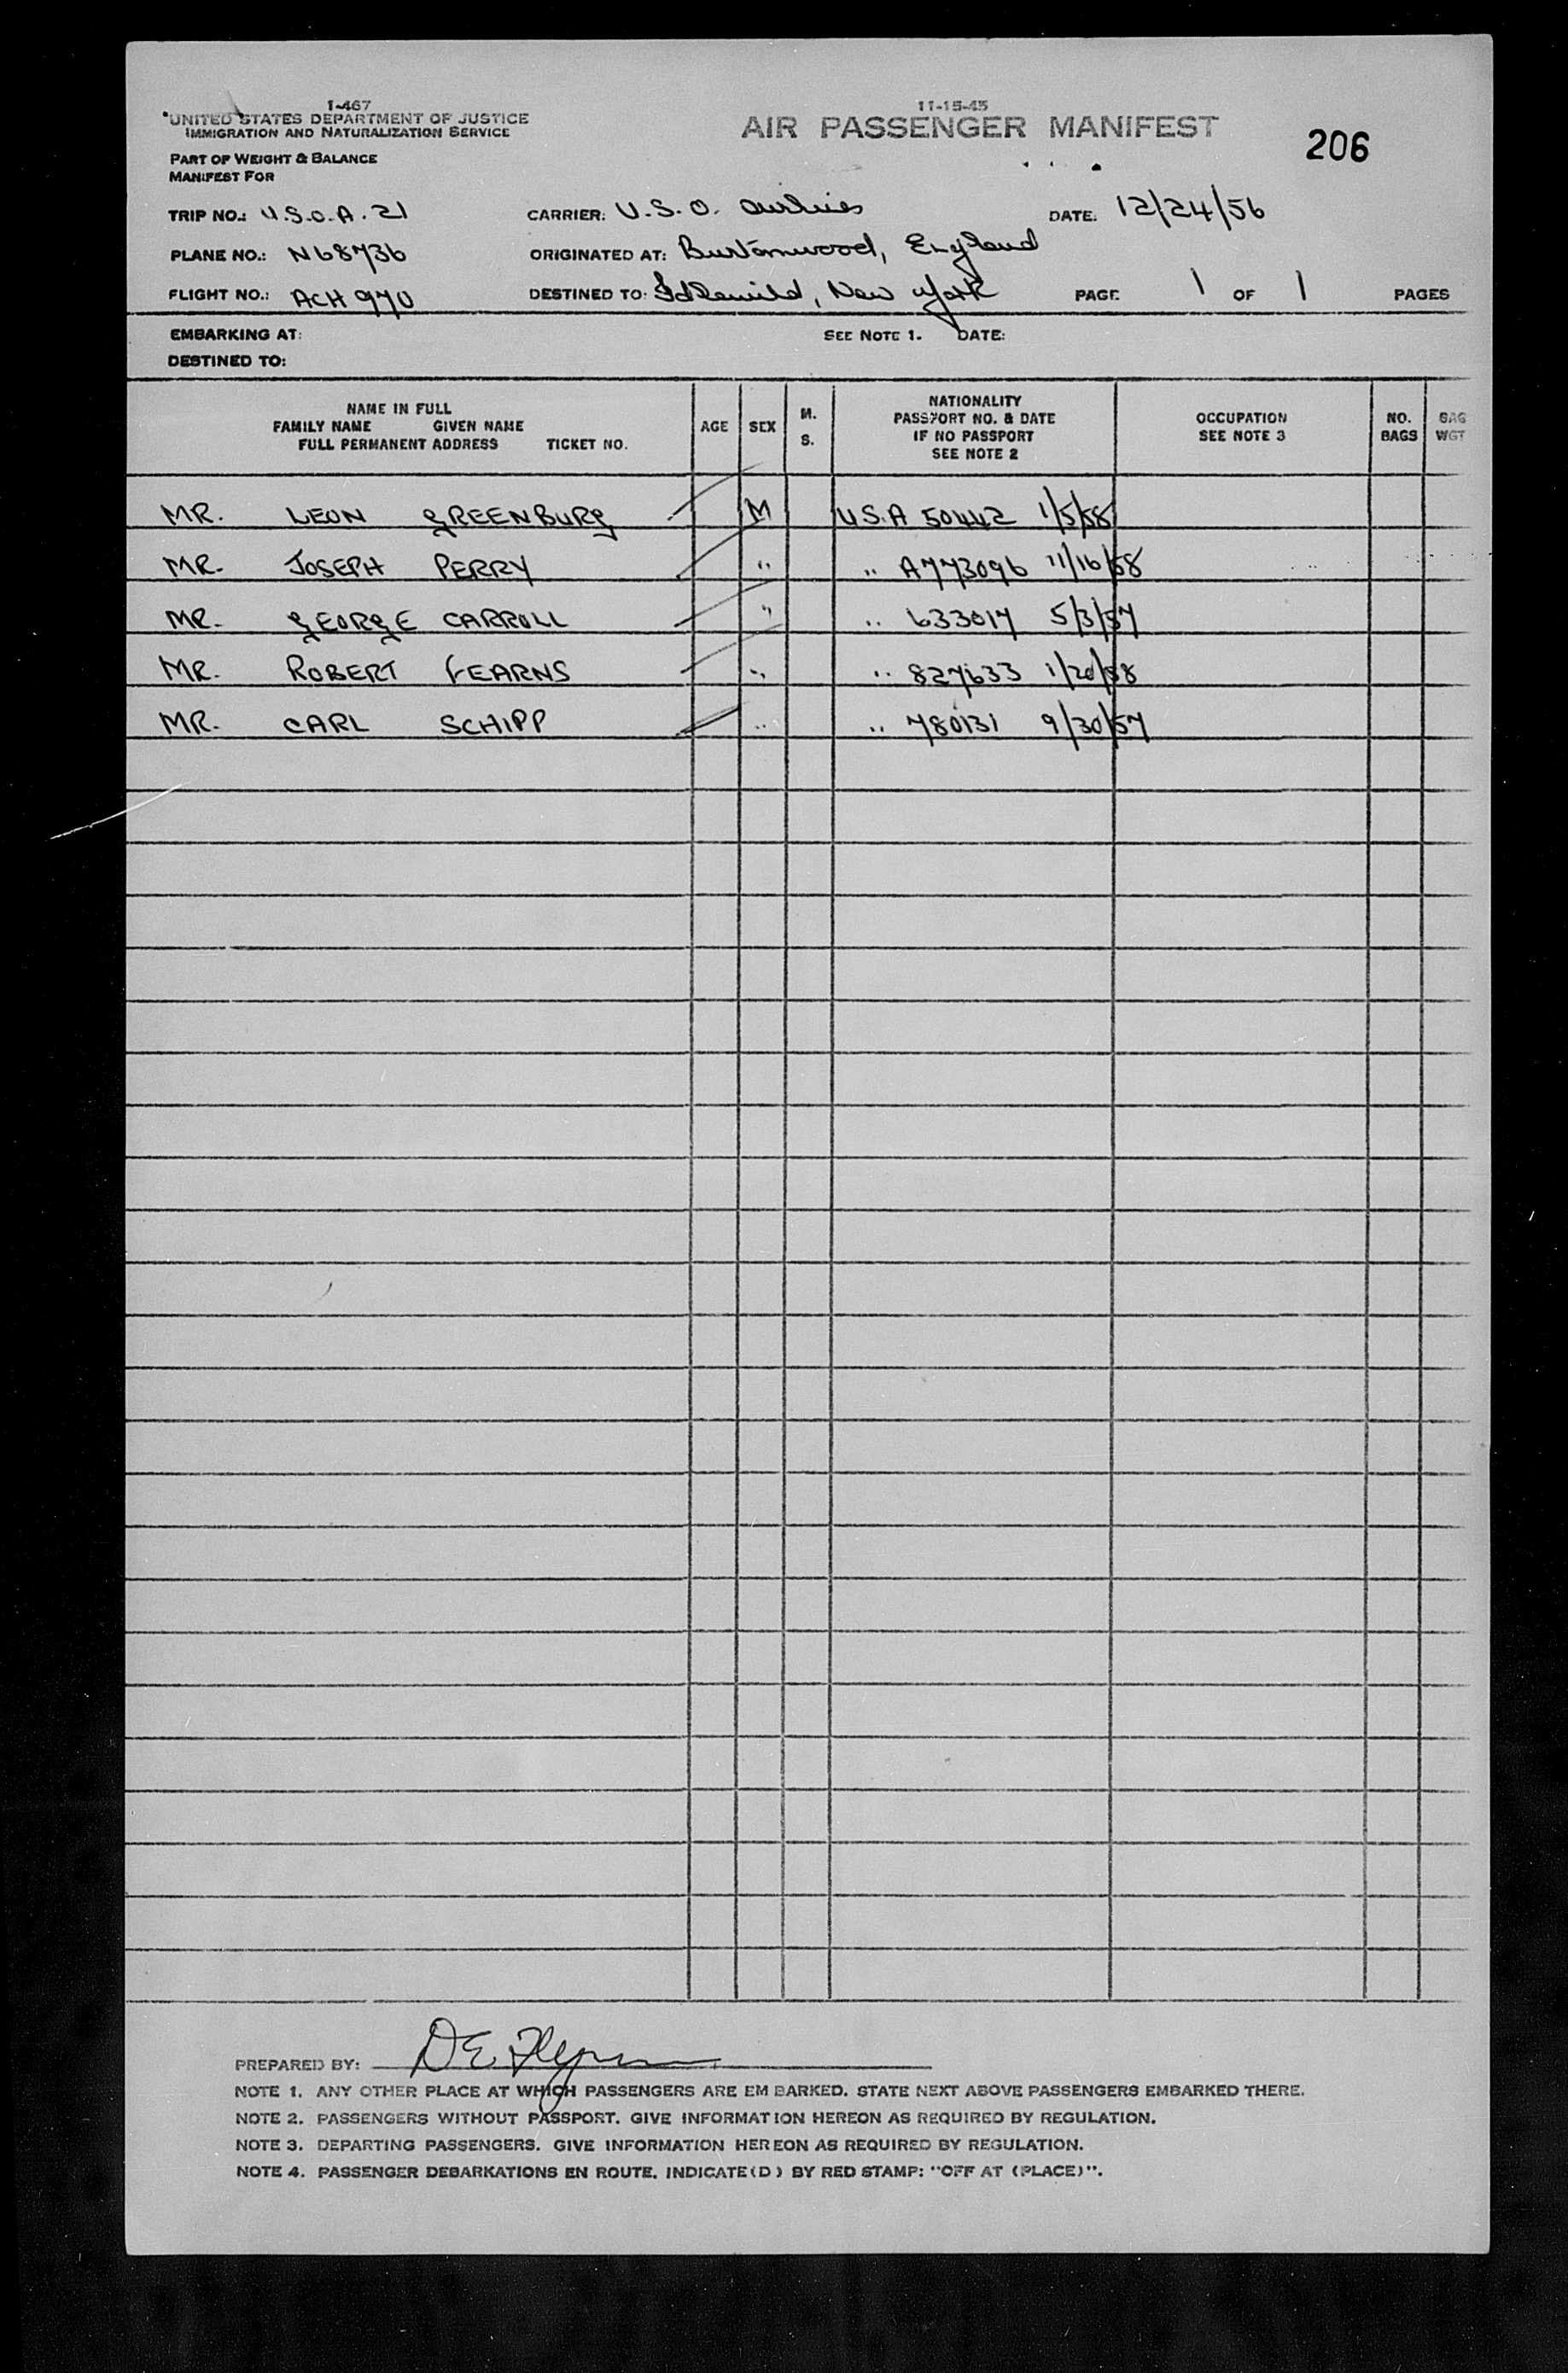 I-467
UNITED STATES DEPARTMENT OF JUSTICE
IMMIGRATION AND NATURALIZATION SERVICE
11-15-45
AIR PASSENGER MANIFEST
206
PART OF WEIGHT & BALANCE
MANIFEST FOR
TRIP NO.: U.S.O.A. 21 CARRIER: U.S.O. Airlines DATE: 12/24/56
PLANE NO.: N68736 ORIGINATED AT: Burtonwood, England
FLIGHT NO.: ACH 970 DESTINED TO: Idlewild, New York PAGE 1 OF 1 PAGES
EMBARKING AT: SEE NOTE 1. DATE:
DESTINED TO:
NAME IN FULL
FAMILY NAME GIVEN NAME
FULL PERMANENT ADDRESS TICKET NO.
AGE
SEX
M.
S.
NATIONALITY
PASSPORT NO. & DATE
IF NO PASSPORT
SEE NOTE 2
OCCUPATION
SEE NOTE 3
NO.
BAGS
BAG
WGT
MR. LEON GREENBURG M U.S.A 50442 1/5/58
MR. JOSEPH PERRY " " A773096 11/16/58
MR. GEORGE CARROLL " " 633017 5/3/57
MR. ROBERT FEARNS " " 827633 1/20/58
MR. CARL SCHIPP " " 780131 9/30/57
PREPARED BY: D E
NOTE 1. ANY OTHER PLACE AT WHICH PASSENGERS ARE EMBARKED. STATE NEXT ABOVE PASSENGERS EMBARKED THERE.
NOTE 2. PASSENGERS WITHOUT PASSPORT. GIVE INFORMATION HEREON AS REQUIRED BY REGULATION.
NOTE 3. DEPARTING PASSENGERS. GIVE INFORMATION HEREON AS REQUIRED BY REGULATION.
NOTE 4. PASSENGER DEBARKATIONS EN ROUTE. INDICATE(D) BY RED STAMP: "OFF AT (PLACE)".